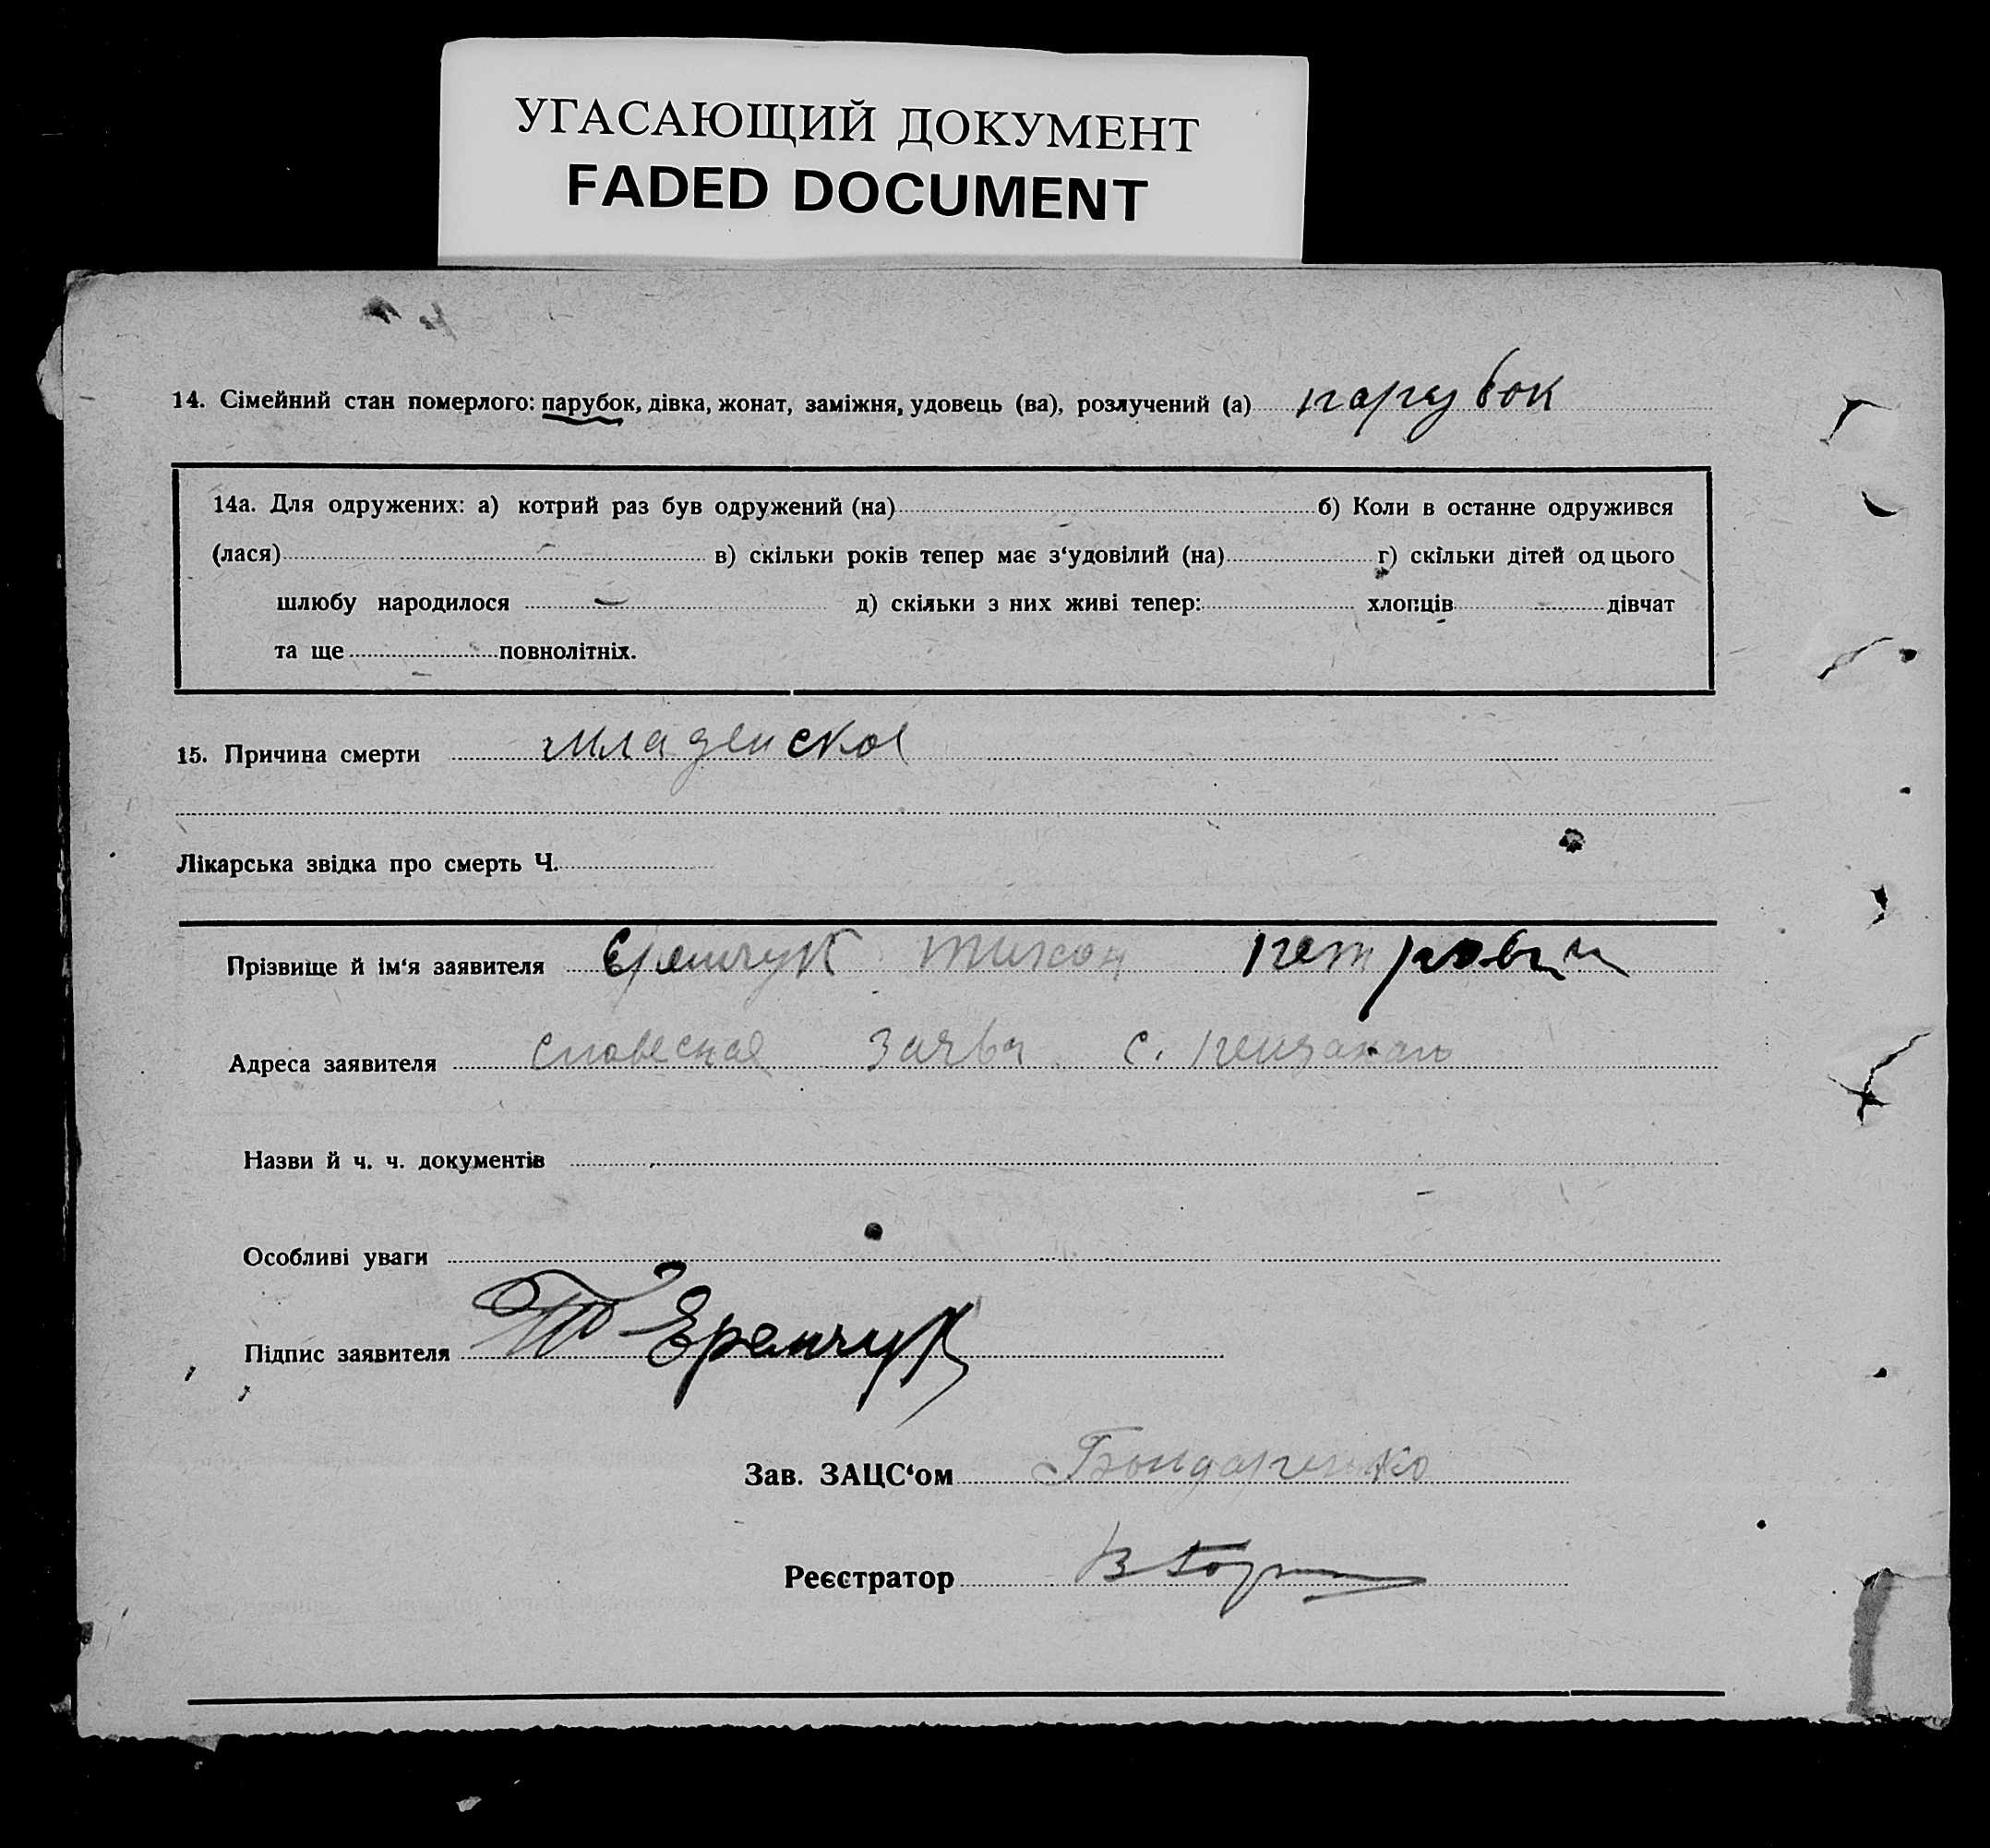 УГАСАЮЩИЙ ДОКУМЕНТ
FADED DOCUMENT
14. Сімейний стан померлого: парубок, дівка, жонат, заміжня, удовець (ва), розлучений (а) парубок
14а. Для одружених: а) котрий раз був одружений (на) б) Коли в останне одружився
(лася) в) скільки років тепер має з‘удовілий (на) г) скільки дітей од цього
шлюбу народилося – д) скільки з них живі тепер: хлопців дівчат
та ще повнолітніх.
15. Причина смерти младенское
Лікарська звідка про смерть Ч.
Прізвище й ім‘я заявителя Еремчук Тихон Петрович
Адреса заявителя словесная заява с.
Назви й ч. ч. документів
Особливі уваги
Підпис заявителя Т Еремчук
Зав. ЗАЦС‘ом Бондаренко
Реєстратор